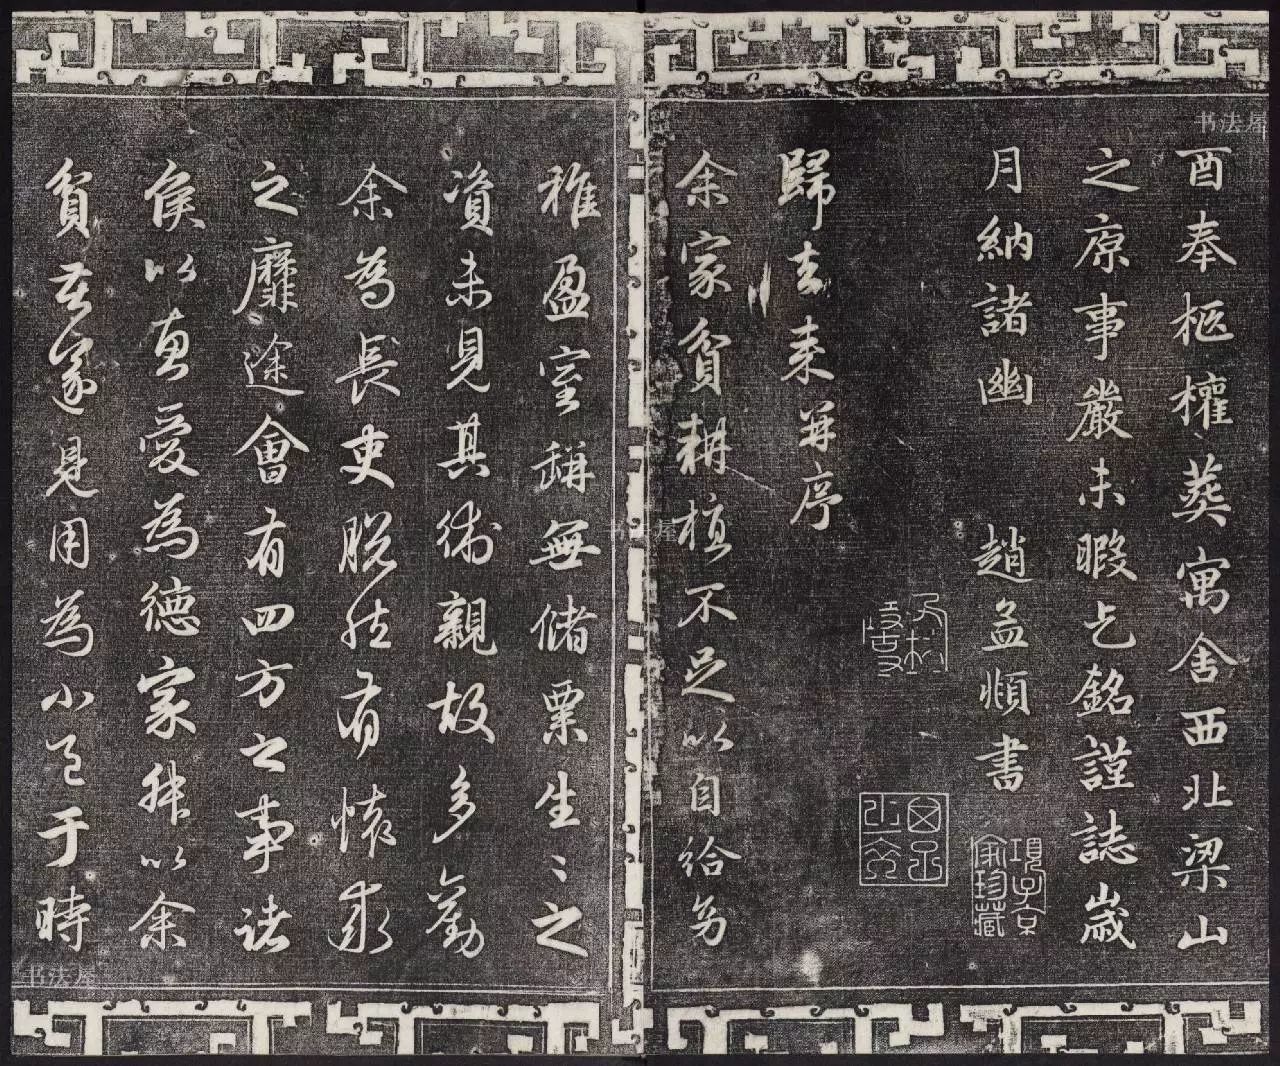 酉奉柩權葬寓舍西北梁山
之原事嚴未暇乞銘謹誌歲
月納諸幽 趙孟頫書
項子京家珍藏
歸去来并序
余家貧耕植不足以自給幼
稚盈室缾無儲粟生〻之
資未見其術親故多勸
余為長吏脫然有懷求
之靡途會有四方之事諸
侯以惠愛為德家叔以余
貧苦遂見用為小邑于時
书法屋
书法屋
书法屋